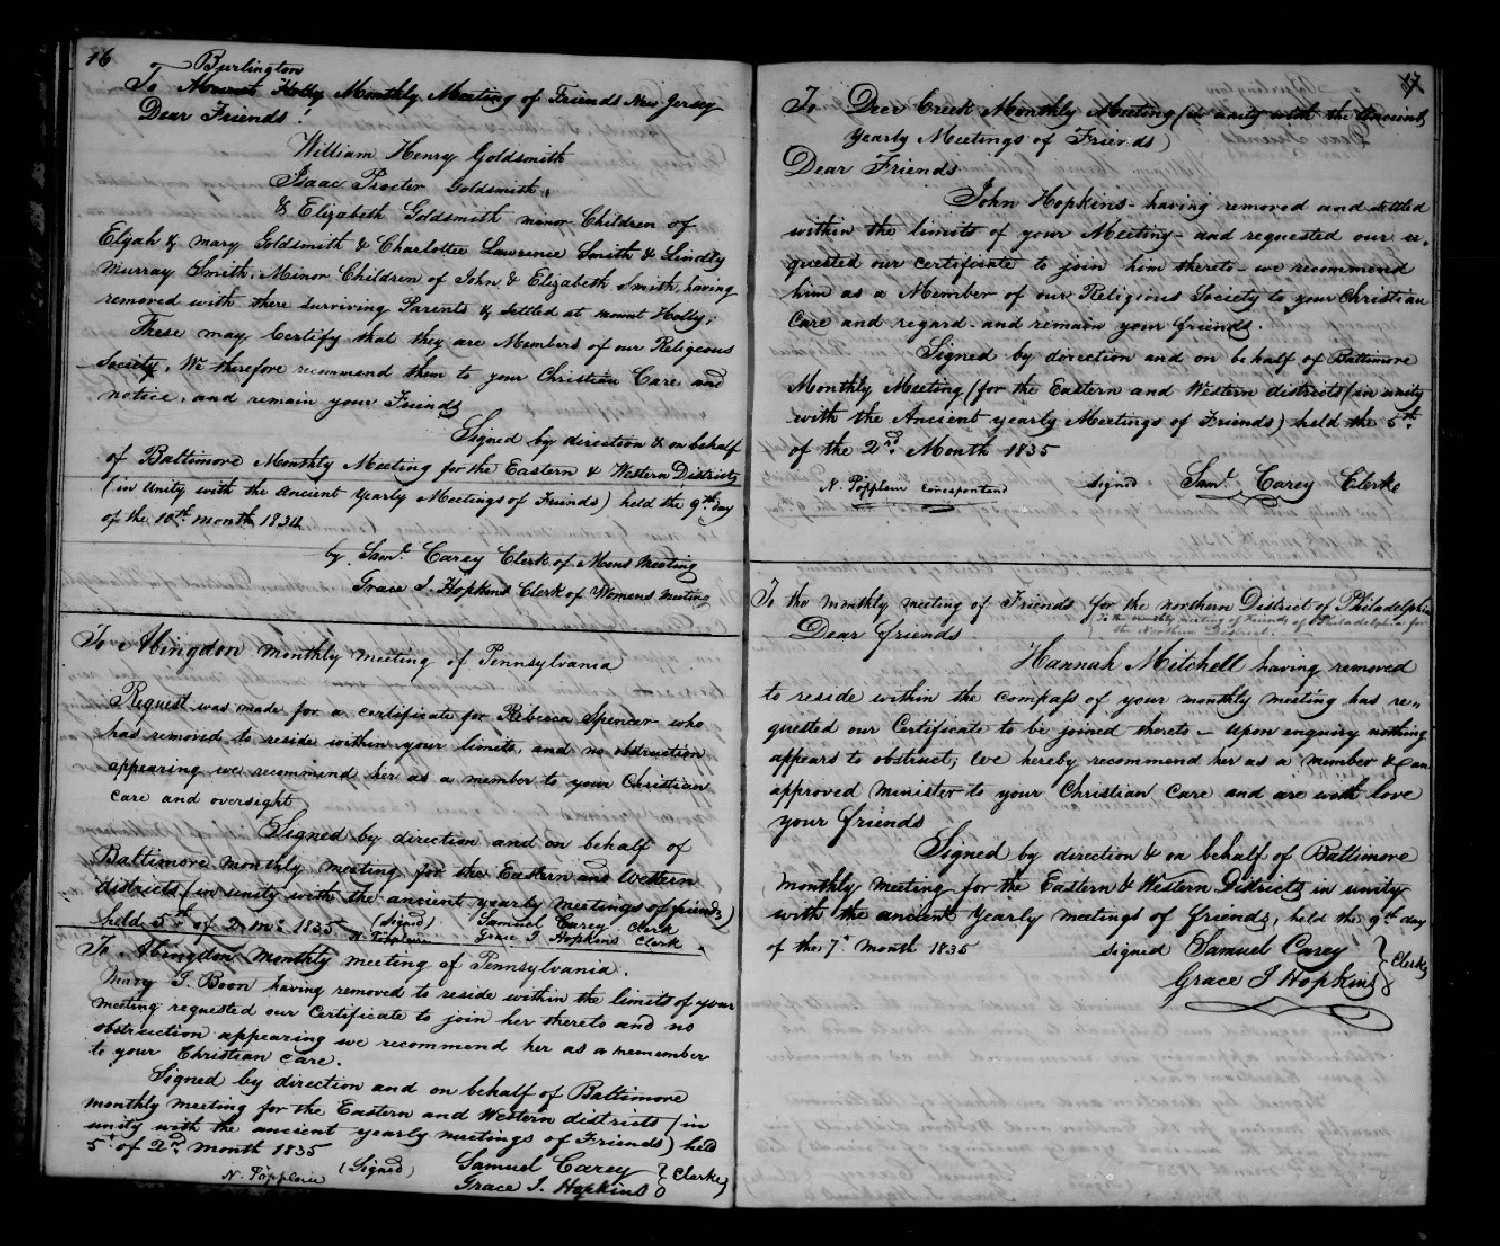 16
Burlington
To Mount Holly Monthly Meeting of Friends New Jersey
Dear Friends.
William Henry Goldsmith
Isaac Procter Goldsmith,
& Elizabeth Goldsmith minor Children of
Elijah & Mary Goldsmith & Charlottee Lawrence Smith & Lindley
Murray Smith, Minor Children of John & Elizabeth Smith, having
removed with there surviving Parents & settled at Mount Holly,
These may Certify that they are Members of our Religeous
Society. We therefore recommend them to your Christian Care and
notice, and remain your Friends
Signed by direction & on behalf
of Baltimore Monthly Meeting for the Eastern & Western Districts
(in Unity with the Ancient Yearly Meetings of Friends) held the 9th day
of the 10th month 1834
by Saml. Carey Clerk of Mens Meeting
Grace I. Hopkins Clerk of Womens Meeting
To Abingdon monthly meeting of Pennsylvania
Request was made for a certificate for Rebecca Spencer who
has removed to reside within your limits, and no obstruction
appearing we recommend her as a member to your Christian
care and oversight
Signed by direction and on behalf of
Baltimore monthly meeting for the Eastern and Western
districts (in unity with the ancient yearly meetings of friends)
held 5th of 2 mo: 1835 (signed) Samuel Carey Clerk
N. Pöpplein Grace I Hopkins Clerk
To Abingdon Monthly meeting of Pennsylvania.
Mary I. Boon having removed to reside within the limits of your
meeting requested our Certificate to join her thereto and no
obstruction appearing we recommend her as a memember
to your Christian care.
Signed by direction and on behalf of Baltimore
monthly meeting for the Eastern and Western districts (in
unity with the ancient yearly meetings of Friends) held
5t of 2nd month 1835
(Signed) Samuel Carey
N. Pöpplein Grace I. Hopkins } Clerks
17
To Deer Creek Monthly Meeting (in unity with the Ancient
Yearly Meetings of Friends)
Dear Friends
John Hopkins - having removed and settled
within the limits of your Meeting - and requested our re,
quested our Certificate to join him thereto - we recommend
him as a Member of our Religious Society to your Christian
Care and regard - and remain your friends.
Signed by direction and on behalf of Baltimore
Monthly Meeting (for the Eastern and Western districts (in unity
with the Ancient yearly Meetings of Friends) held the 5th
of the 2nd. Month 1835
N. Pöpplein Correspondend signed Saml. Carey Clerke
To the monthly meeting of Friends for the northern District of Philadelphia
To the monthly meeting of Friends of Philadelphia for
the Northern District.
Dear friends
Hannah Mitchell having removed
to reside within the compass of your monthly meeting has re,,
quested our Certificate to be joined thereto - upon enquiry nothing
appears to obstruct; We hereby recommend her as a member & an
approved minister to your Christian Care and are with love
your friends
Signed by direction & on behalf of Baltimore
monthly meeting for the Eastern & Western Districts in unity
with the ancient Yearly meetings of friends, held the 9th day
of the 7t month 1835 signed Samuel Carey
Grace I Hopkins } Clerks